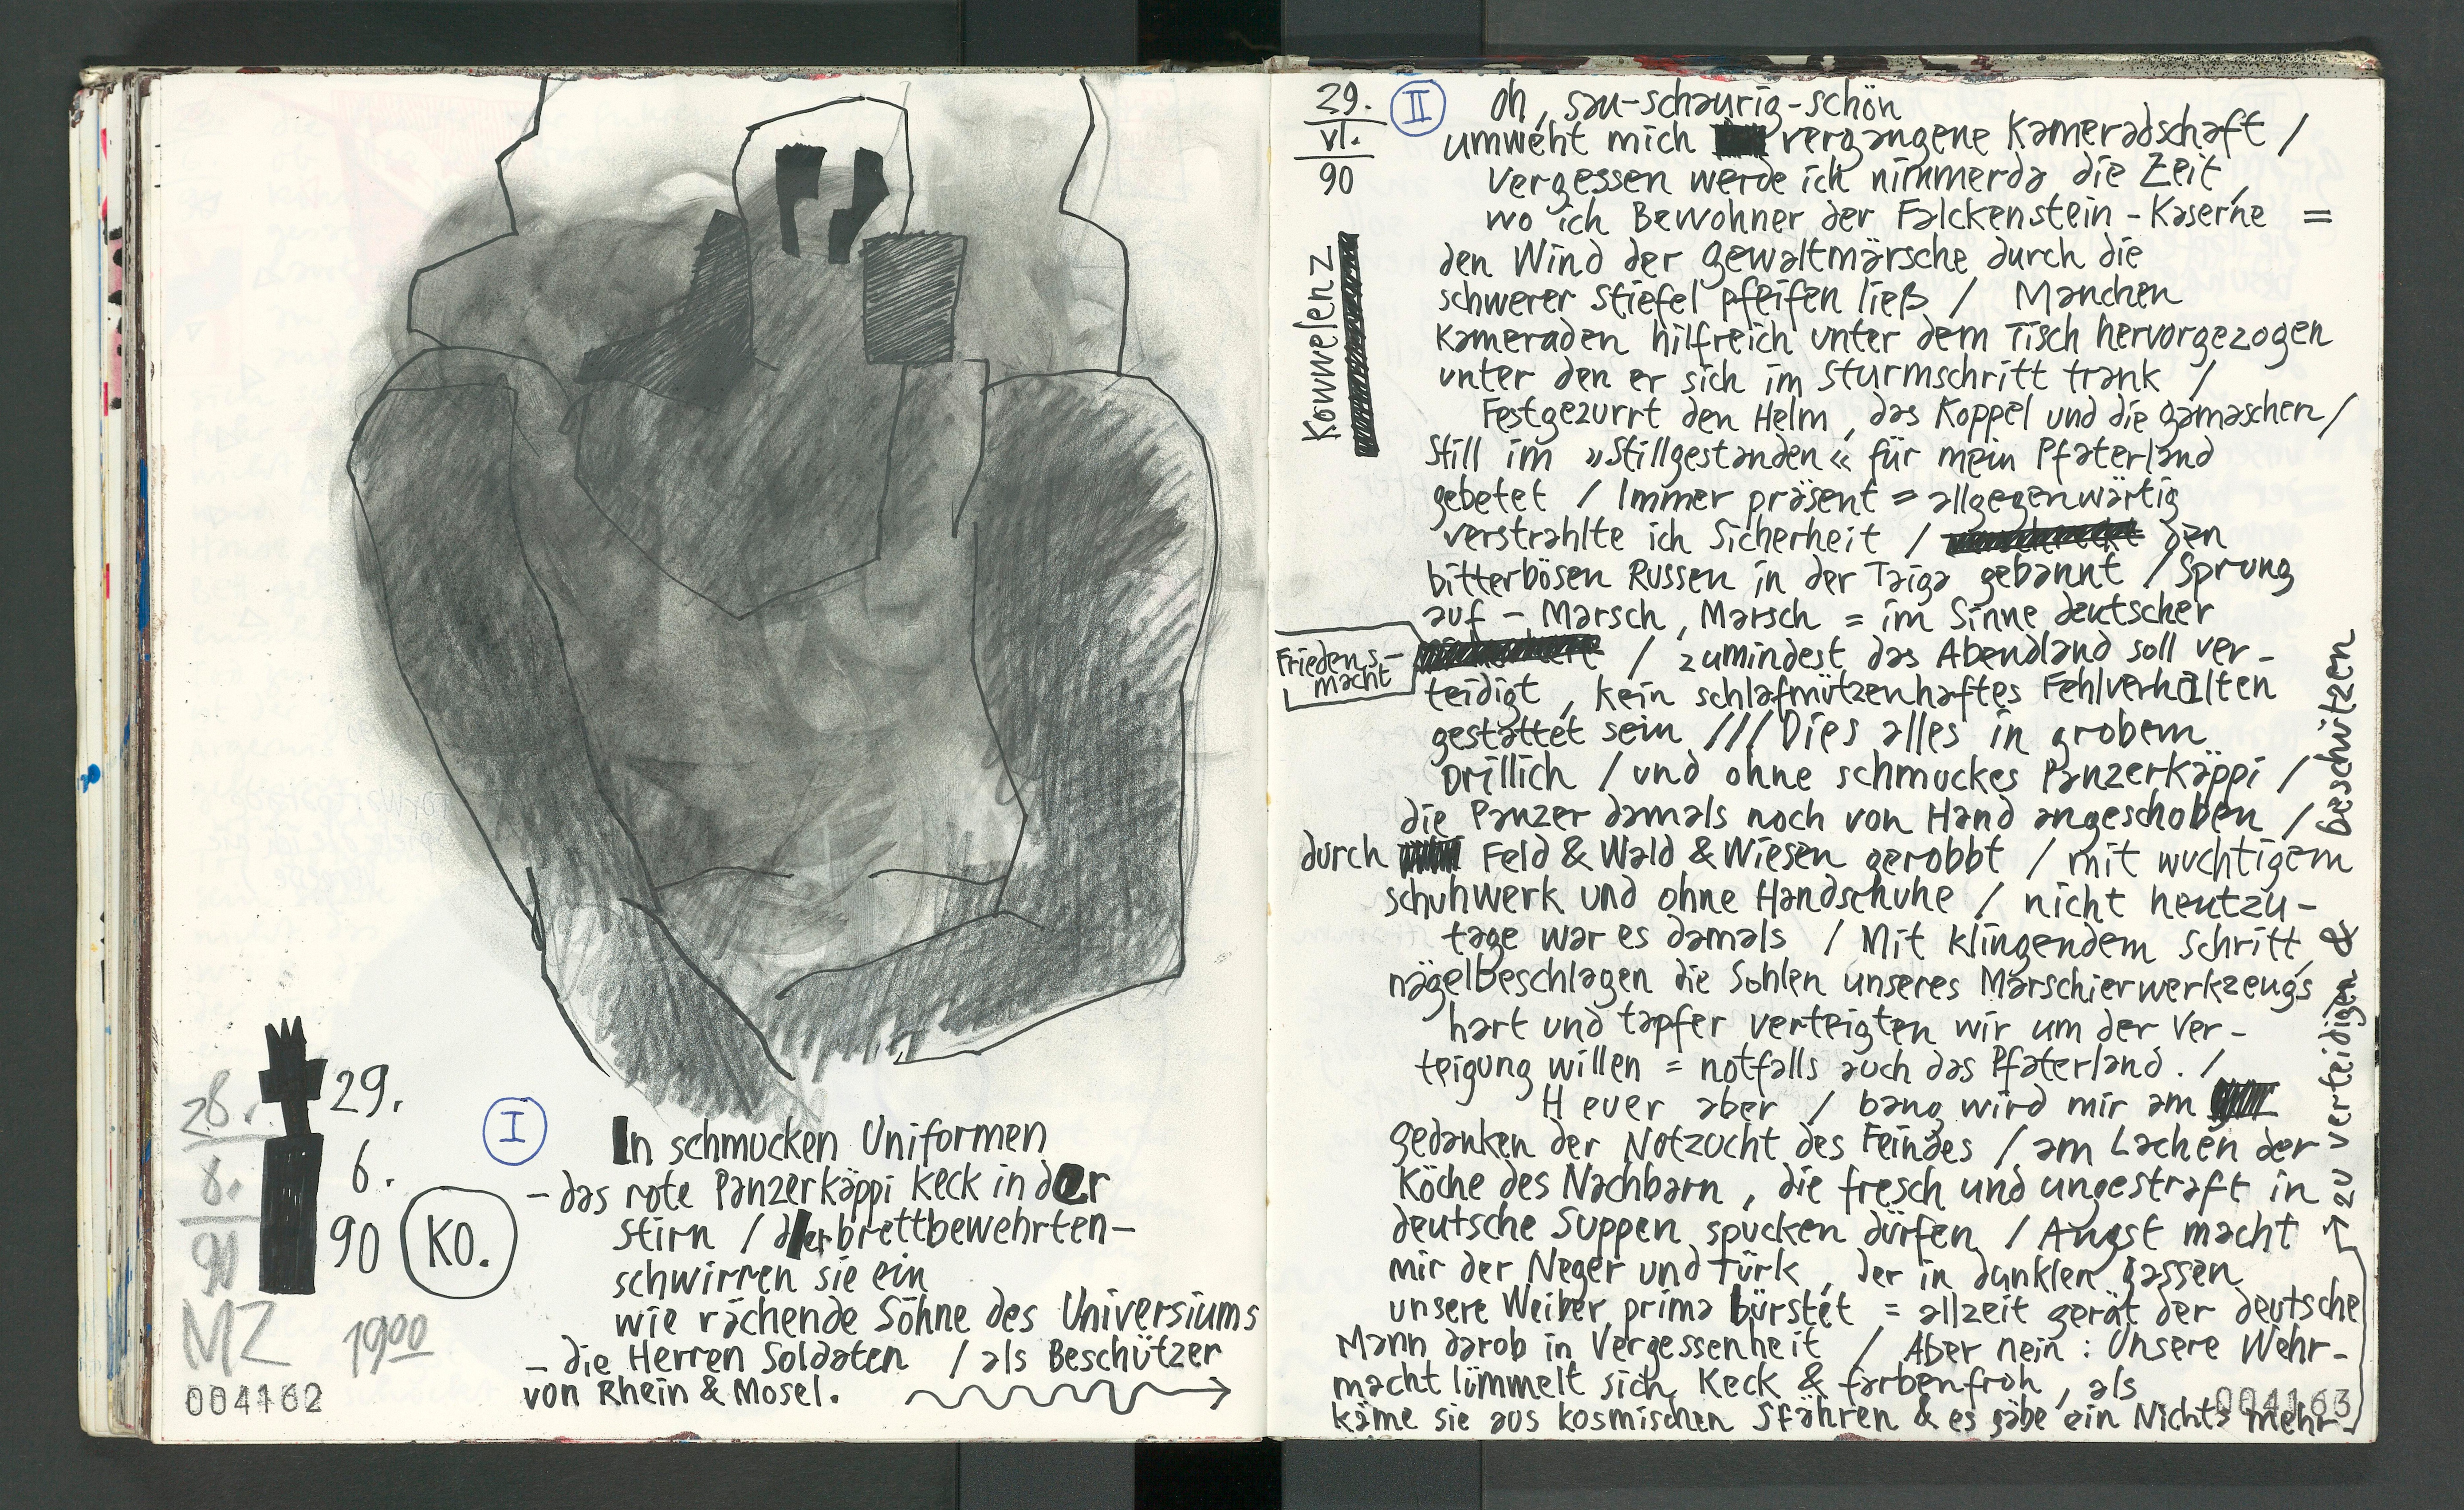 28.
8.
90
MZ
1900
29.
6.
90
KO.
I
In schmucken Uniformen
– das rote Panzerkäppi keck in der
Stirn / der brettbewehrten –
schwirren sie ein
wie rächende Söhne des Universiums
– die Herren Soldaten / als Beschützer
von Rhein & Mosel.
004162
29.
VI.
90
Kowwelenz
II
Oh, sau-schaurig-schön
umweht mich vergangene Kameradschaft /
Vergessen werde ich nimmerda die Zeit,
wo ich Bewohner der Falckenstein-Kaserne =
den Wind der Gewaltmärsche durch die
schwerer Stiefel pfeifen ließ / Manchen
Kameraden hilfreich unter dem Tisch hervorgezogen
unter den er sich im Sturmschritt trank /
Festgezurrt den Helm, das Koppel und die Gamaschen /
Still im »Stillgestanden« für mein Pfaterland
gebetet / Immer präsent = allgegenwärtig
verstrahlte ich Sicherheit / den
bitterbösen Russen in der Taiga gebannt / Sprung
auf – Marsch, Marsch = im Sinne deutscher
Friedens-
macht
/ zumindest das Abendland soll ver-
teidigt, kein schlafmützenhaftes Fehlverhalten
gestattet sein /// Dies alles in grobem
Drillich / und ohne schmuckes Panzerkäppi /
die Panzer damals noch von Hand angeschoben /
durch Feld & Wald & Wiesen gerobbt / mit wuchtigem
Schuhwerk und ohne Handschuhe / nicht heutzu-
tage war es damals / Mit klingendem Schritt,
nägelbeschlagen die Sohlen unseres Marschierwerkzeugs
hart und tapfer verteigten wir um der Ver-
teigung willen = notfalls auch das Pfaterland. /
Heuer aber / bang wird mir am
gedanken der Notzucht des Feindes / am Lachen der
Köche des Nachbarn, die fresch und ungestraft in
deutsche Suppen spucken dürfen / Angst macht
mir der Neger und Türk, der in dunklen Gassen
unsere Weiber prima bürstet = allzeit gerät der deutsche
Mann darob in Vergessenheit / Aber nein: Unsere Wehr-
macht lümmelt sich, Keck & farbenfroh, als
käme sie aus kosmischen Sfähren & es gäbe ein Nichts mehr
zu verteidigen & beschützen
004163